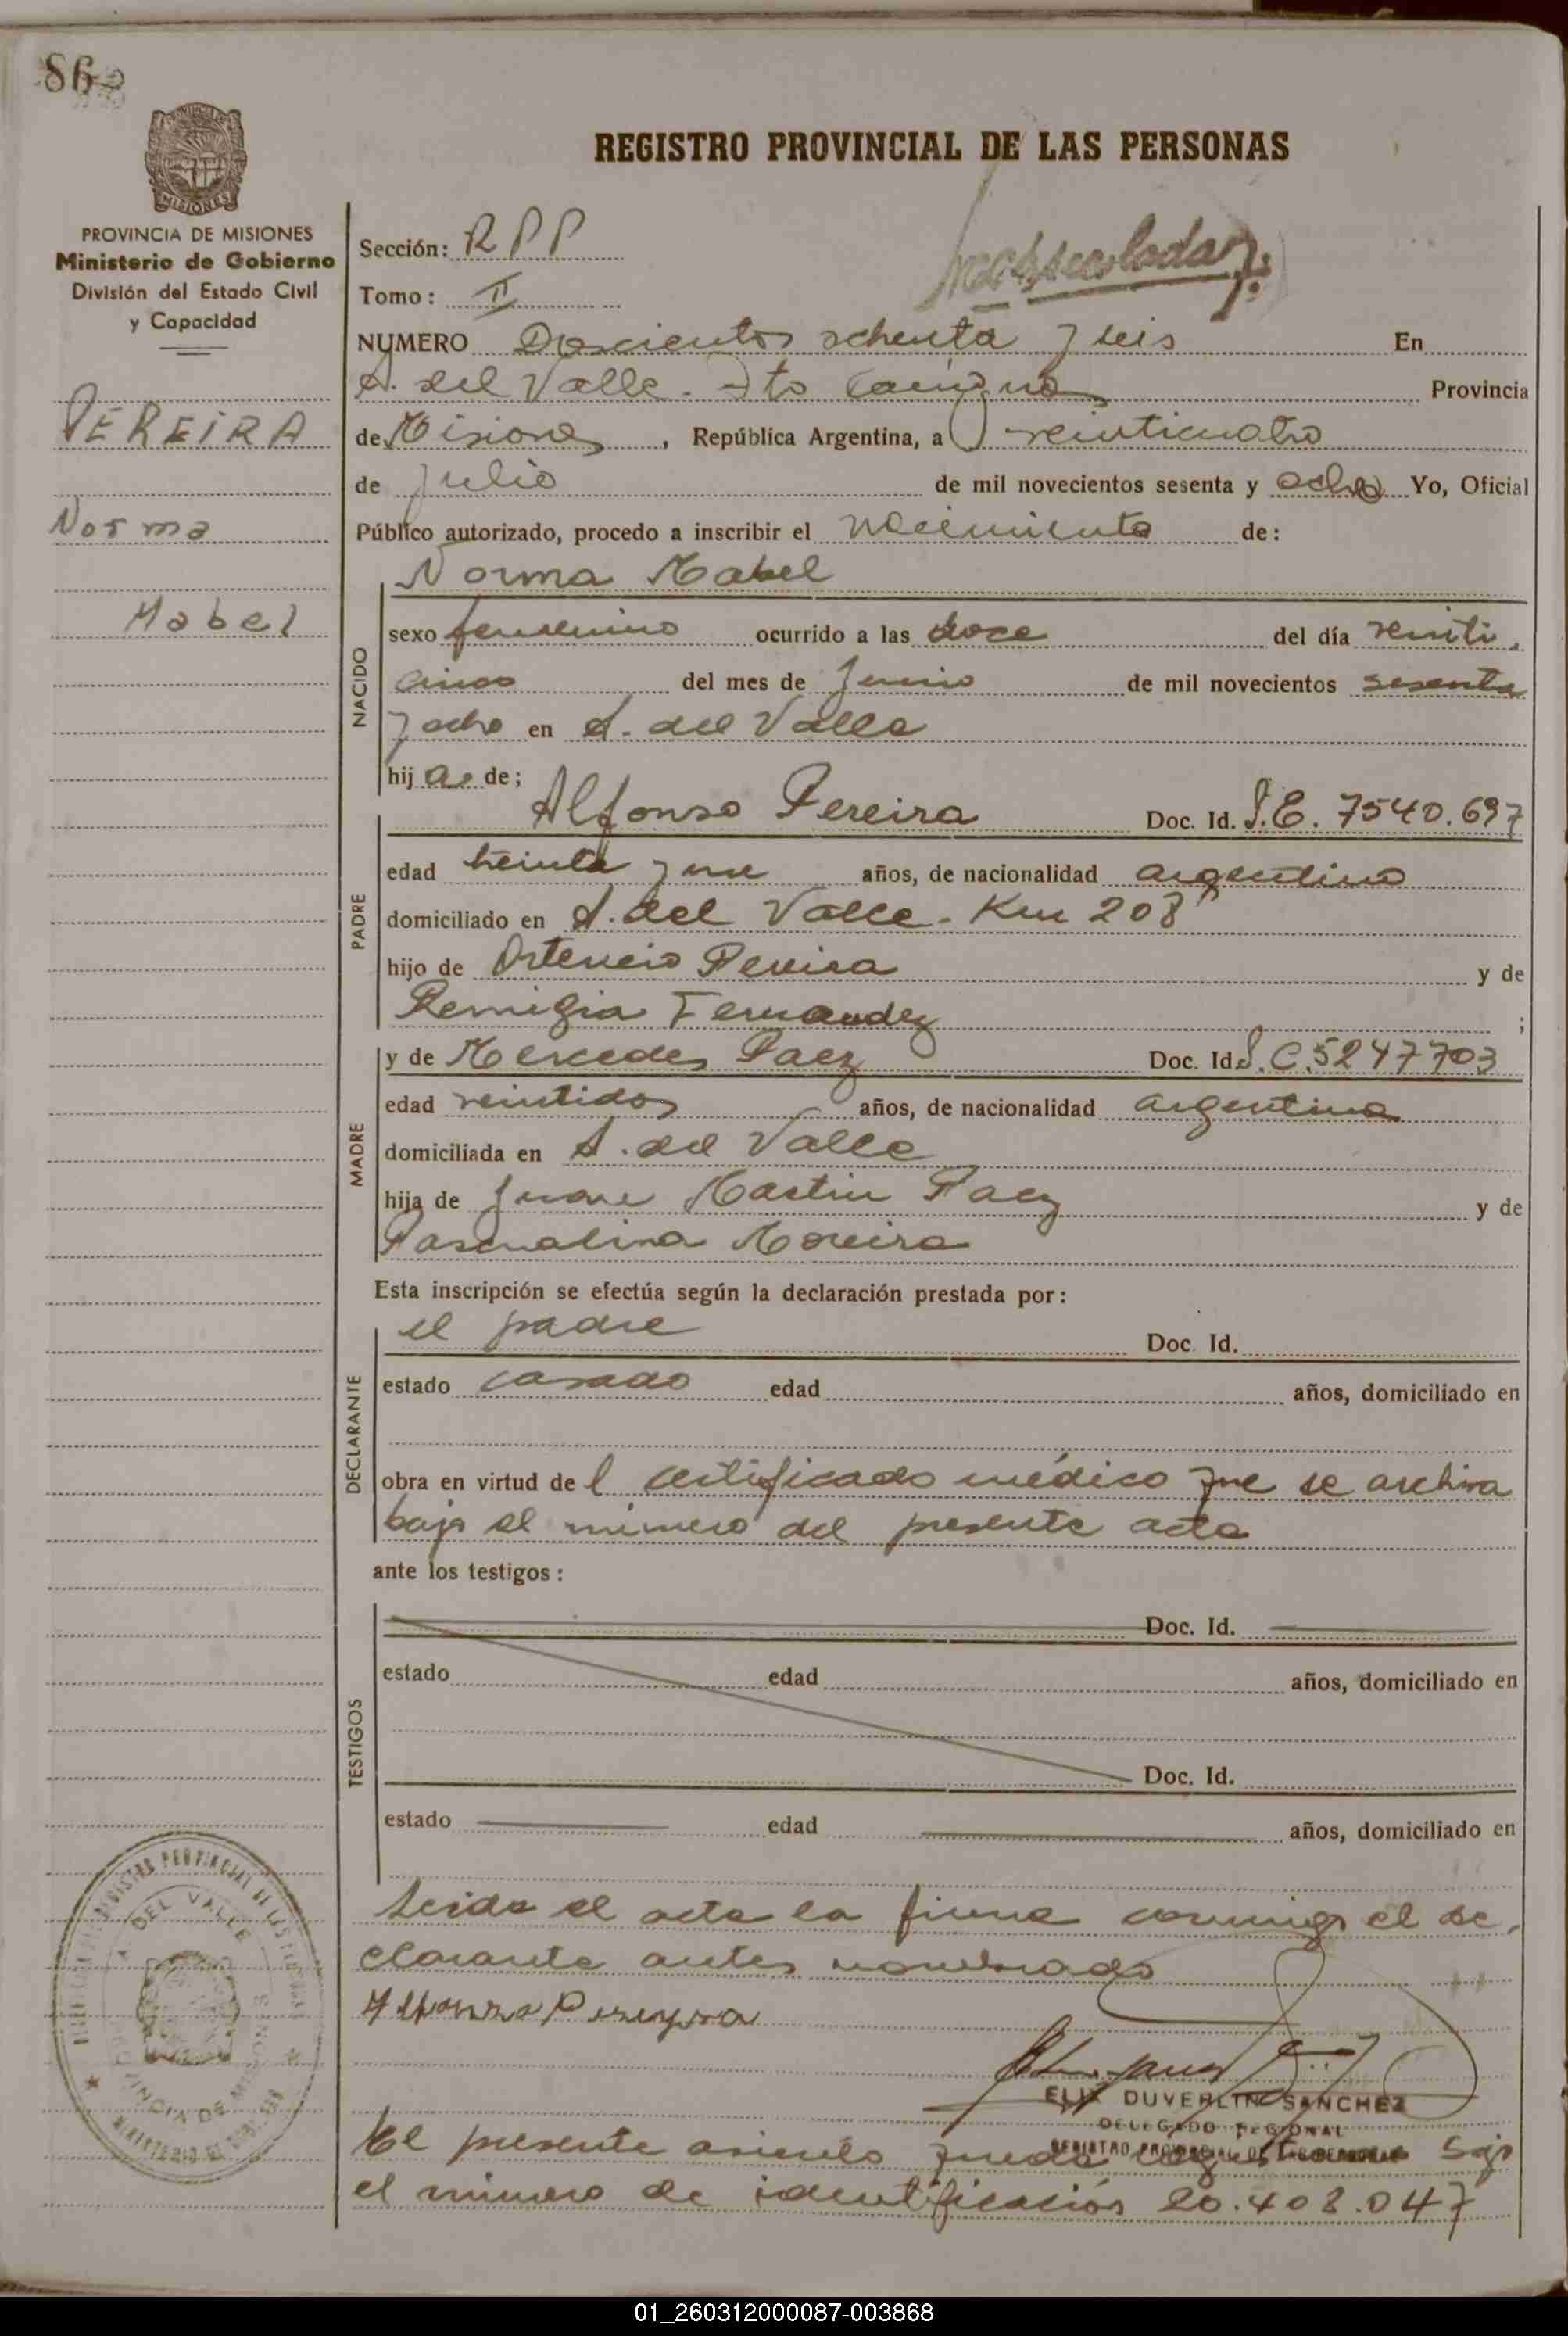 86
REGISTRO PROVINCIAL DE LAS PERSONAS
MISIONES
PROVINCIA DE MISIONES
Ministerio de Gobierno
División del Estado Civil
y Capacidad
PEREIRA
Norma
Mabel
Sección: RPP
Tomo: II
NUMERO Doscientos ochenta y seis En
A. del Valle - Dto Cainguas Provincia
de Misiones, República Argentina, a veinticuatro
de Julio de mil novecientos sesenta y ocho Yo, Oficial
Público autorizado, procedo a inscribir el nacimiento de:
NACIDO
Norma Mabel
sexo femenino ocurrido a las doce del día veinti
cinco del mes de Junio de mil novecientos sesenta
y ocho en A. del Valle
hij a de;
PADRE
Alfonso Pereira Doc. Id. L.E. 7540.697
edad treinta y un años, de nacionalidad argentino
domiciliado en A. del Valle - Km 208
hijo de Ortencio Pereira y de
Remigia Fernandez ;
MADRE
y de Mercedes Paez Doc. Id. L.C. 5247703
edad veintidos años, de nacionalidad argentina
domiciliada en A. del Valle
hija de Juan Martin Paez y de
Pascualina Moreira
Esta inscripción se efectúa según la declaración prestada por:
DECLARANTE
el padre Doc. Id.
estado casado edad años, domiciliado en
obra en virtud de l certificado médico que se archiva
bajo el número del presente acta
ante los testigos:
TESTIGOS
Doc. Id.
estado edad años, domiciliado en
Doc. Id.
estado edad años, domiciliado en
Leida el acta la firma conmigo el de
clarante antes nombrado
Alfonso Pereyra
DUVERLINO SANCHEZ
DELEGADO REGIONAL
REGISTRO PROVINCIAL DE LAS PERSONAS
A. DEL VALLE
PROVINCIA DE MISIONES
El presente asiento queda bajo
el número de identificación 20.408.047
01_260312000087-003868